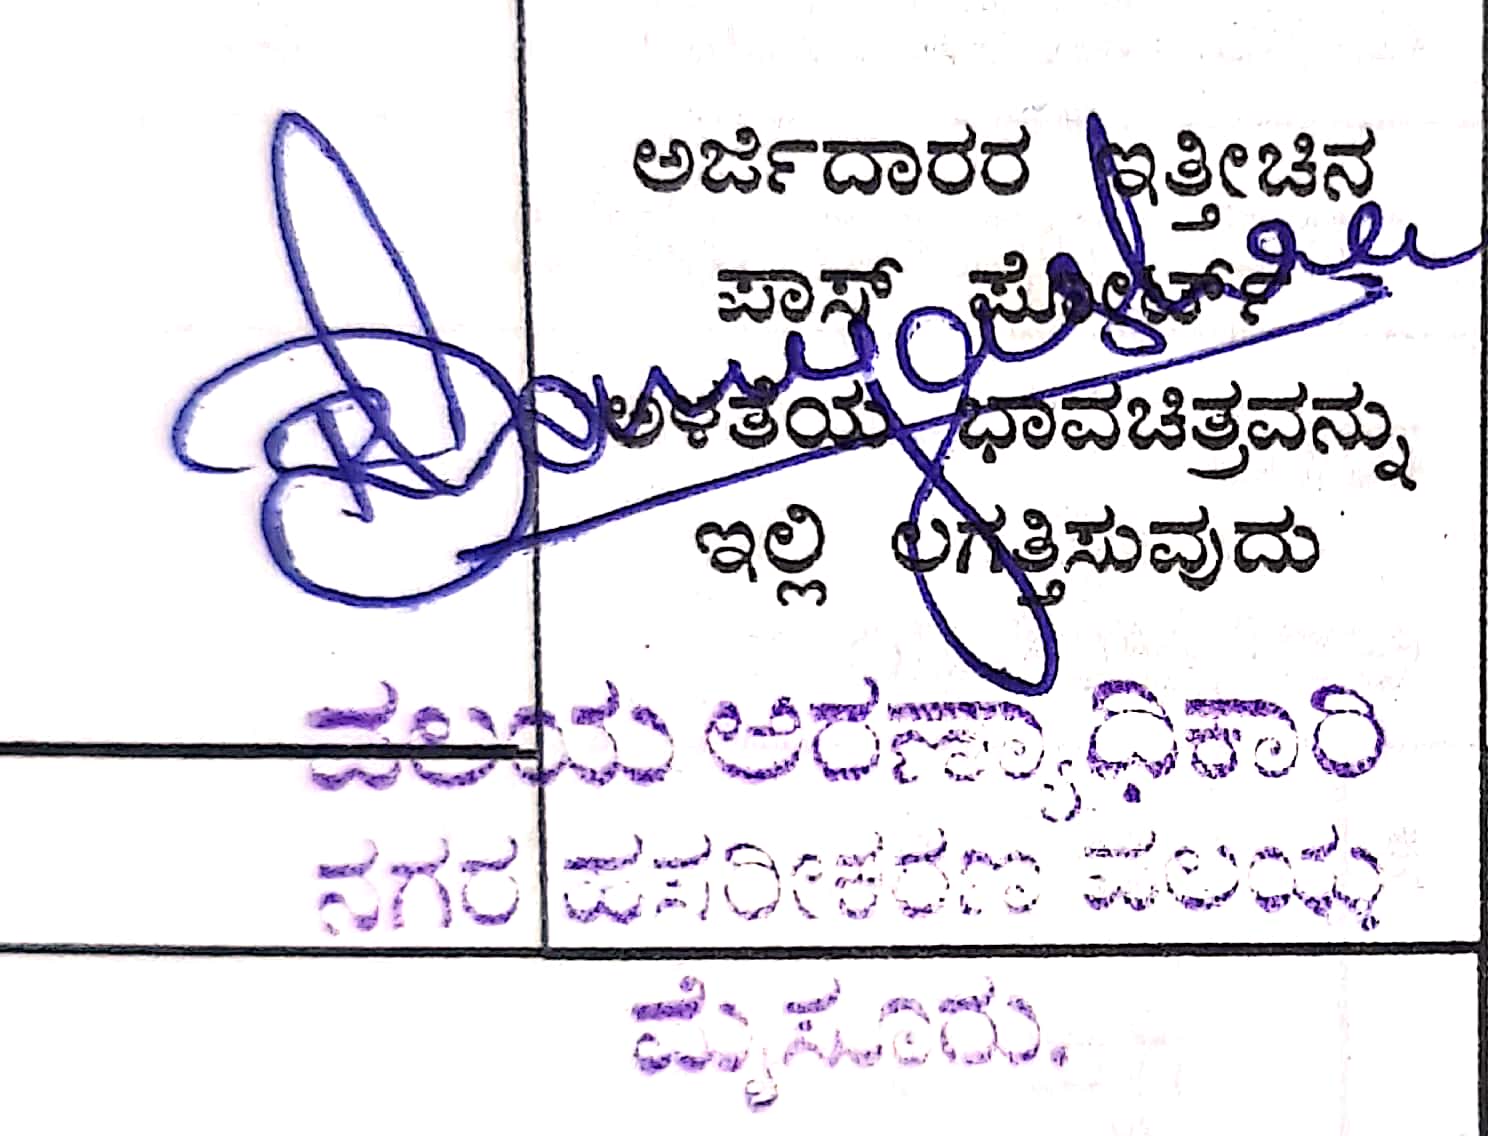 ಅರ್ಜಿದಾರರ ಇತ್ತೀಚಿನ
ಪಾಸ್ ಪೋರ್ಟ್
ಅಳತೆಯ ಭಾವಚಿತ್ರವನ್ನು
ಇಲ್ಲಿ ಲಗತ್ತಿಸುವುದು
ವಲಯ ಅರಣ್ಯಾಧಿಕಾರಿ
ನಗರ ಹಸರೀಕರಣ ವಲಯ
ಮೈಸೂರು.